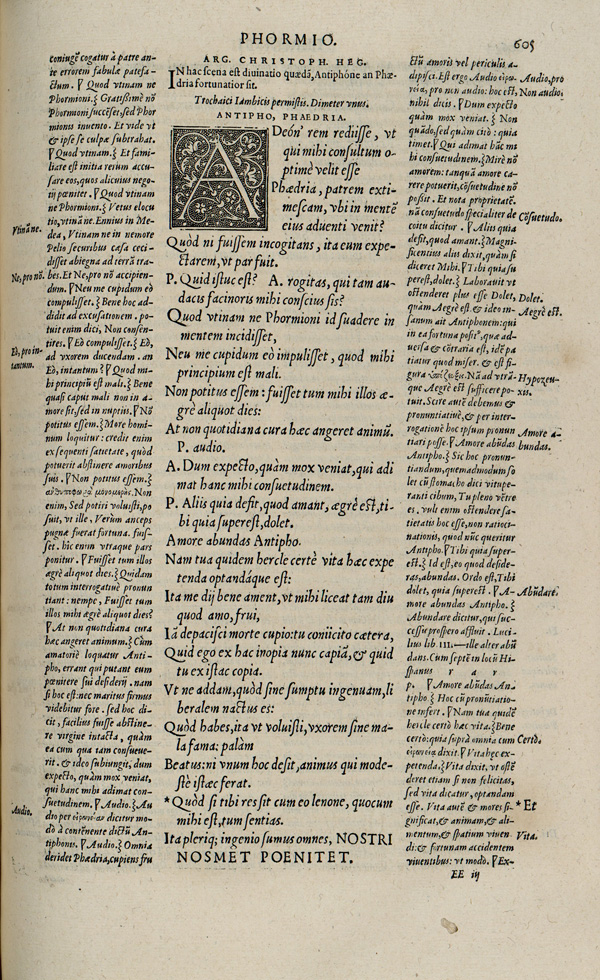 PHORMIO.
605
coniugē cogatur à patre an-
te errorem fabulæ patefa-
ctum. ⁋ Quod vtinam ne
Phormioni.⁆ Gratissimè nō
Phormioni succēset, sed Phor
mionis inuento. Et vide vt
& ipse se culpæ subtrahat.
⁋ Quod vtinam.⁆ Et fami-
liare est initia rerum accu-
sare eos, quos alicuius nego-
tij pœnitet. ⁋ Quod vtinam
ne Phormioni.⁆ Vetus elocu
tio, vtinā ne. Ennius in Me-
dea, Vtinam ne in nemore
Pelio securibus cæsa ceci-
disset abiegna ad terrā tra-
bes. Et Ne, pro nō accipien-
dum. ⁋ Neu me cupidum eò
compulisset.⁆ Bene hoc ad-
didit ad excusationem. po-
tuit enim dici, Non consen-
tires. ⁋ Eò compulisset.⁆ Eò,
ad vxorem ducendam. an
Eò, intantum? ⁋ Quod mi-
hi principiū est mali.⁆ Bene
quasi caput mali non in a-
more sit, sed in nuptijs. ⁋ Nō
potitus essem.⁆ More homi-
num loquitur: credit enim
ex sequenti satietate, quòd
potuerit abstinere amoribus
suis. ⁋ Non potitus essem.⁆
Non
enim, Sed potiri voluisti, po
suit, vt ille, Verùm anceps
pugnæ fuerat fortuna. fuis-
set. hîc enim vtraque pars
ponitur. ⁋ Fuisset tum illos
ægrè aliquot dies.⁆ Quidam
totum interrogatiuè pronun
tiant: nempe, Fuisset tum
illos mihi ægrè aliquot dies?
⁋ At non quotidiana cura
hæc angeret animum.⁆ Cùm
amatoriè loquatur Anti-
pho, errant qui putant eum
pœnitere sui desiderij. nam
si hoc est: nec maritus firmus
videbitur fore. sed hoc di-
cit, facilius fuisse abstine-
re virgine intacta, quàm
ea cum qua tam consueue-
rit. & ideo subiungit, dum
expecto, quàm mox veniat,
qui hanc mihi adimat con-
suetudinem. ⁋ Audio.⁆ Au
dio per dicitur mo-
dò à contēnente dictū An-
tiphonis. ⁋ Audio.⁆ Omnia
deridet Phædria, cupiens fru
Vtinā ne.
Ne, pro nō.
Eò, pro in-
tantum.
Audio.
ARG. CHRISTOPH. HEG.
IN hac scena est diuinatio quædā, Antiphóne an Phæ-
dria fortunatior sit.
Trochaici Iambicis permistis. Dimeter vnus.
ANTIPHO, PHAEDRIA.
ADeón' rem rediisse, vt
qui mihi consultum o-
ptimè velit esse
Phædria, patrem exti-
mescam, vbi in mentē
eius aduenti venit?
Quòd ni fuissem incogitans, ita eum expe-
ctarem, vt par fuit.
P. Quid istuc est? A. rogitas, qui tam au-
dacis facinoris mihi conscius sis?
Quod vtinam ne Phormioni id suadere in
mentem incidisset,
Neu me cupidum eò impulisset, quod mihi
principium est mali.
Non potitus essem: fuisset tum mihi illos æ-
grè aliquot dies:
At non quotidiana cura hæc angeret animū.
P. audio.
A. Dum expecto, quàm mox veniat, qui adi
mat hanc mihi consuetudinem.
P. Aliis quia defit, quod amant, ægrè est, ti-
bi quia superest, dolet.
Amore abundas Antipho.
Nam tua quidem hercle certè vita hæc expe
tenda optandáque est:
Ita me dij bene ament, vt mihi liceat tam diu
quod amo, frui,
Iā depacisci morte cupio: tu coniicito cætera,
Quid ego ex hac inopia nunc capiā, & quid
tu ex istac copia.
Vt ne addam, quòd sine sumptu ingenuam, li
beralem nactus es:
Quòd habes, ita vt voluisti, vxorem sine ma-
la fama: palàm
Beatus: ni vnum hoc desit, animus qui mode-
stè istæc ferat.
*Quòd si tibi res sit cum eo lenone, quocum
mihi est, tum sentias.
Ita pleriq; ingenio sumus omnes, NOSTRI
NOSMET POENITET.
ctū amoris vel periculis a-
dipisci. Est ergo Audio
pro non audio: hoc est,
nihil dicis. ⁋ Dum expecto
quàm mox veniat.⁆ Non
quādo, sed quàm citò: quia
timet. ⁋ Qui adimat hāc mi
hi consuetudinem.⁆ Mirè nō
amorem: tanquā amore ca-
rere potuerit, cōsuetudine nō
possit. Et nota proprietatē.
nā consuetudo specialiter de
coitu dicitur. ⁋ Aliis quia
defit, quod amant.⁆ Magni-
ficentius aliis dixit, quàm si
diceret Mihi. ⁋ Tibi quia su
perest, dolet.⁆ Laborauit vt
ostenderet plus esse Dolet,
quàm Ægrè est: & ideo in-
sanum ait Antiphonem: qui
in ea fortuna posit⁹, quæ ad-
uersa & cōtraria est, idē pa
tiatur quod miser. & est fi-
gura Nā ad vtrā-
que Ægrè est sufficere po-
tuit. Scire autē debemus &
pronuntiatiuè, & per inter-
rogationē hoc ipsum pronun
tiari posse. ⁋ Amore abūdas
Antipho.⁆ Sic hoc pronun-
tiandum, quemadmodum so
let cūstoma; ho dici vitupe-
ranti cibum, Tu pleno vētre
es. vult enim ostendere sa-
tietatis hoc esse, non ratioci-
nationis, quod nūc queritur
Antipho. ⁋ Tibi quia super-
est.⁆ Id est, eo quod deside-
ras, abundas. Ordo est, Tibi
dolet, quia superest. ⁋ A-
more abundas Antipho.⁆
Abundare dicitur, qui suc-
cessu prospero affluit. Luci-
lius lib III. — ille alter abū
dans. Cum septē in locū Hi-
spanus r a r
p. ⁋ Amore abūdas An-
tipho.⁆ Hoc cū pronūtiatio-
ne infert. ⁋ Nam tua quidē
hercle certò hæc vita.⁆ Bene
certò: quia suprà omnia cum
dixit. ⁋ Vita hec ex-
petenda.⁆ Vita dixit, vt ostē
deret etiam si non felicitas,
sed vita dicatur, optandam
esse. Vita autē & mores si-
gnificat, & animam, & ali-
mentum, & spatium viuen
di: & fortunam accidentem
viuentibus: vt modò. ⁋ Ex-
Audio, pro
Non audio.
Cōsuetudo.
Dolet.
Ægrè est.
Hypozeu-
xis.
Amore a-
bundas.
Abūdare.
Certò.
* Et
Vita.
EE iij